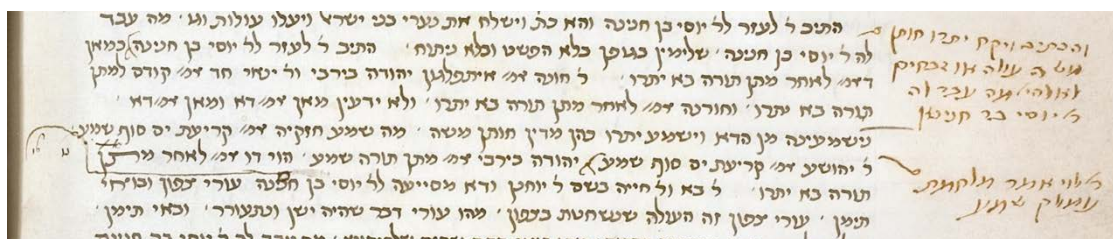 התיב ר' לעזר לר' יוסי בן חנינה והא כת' וישלח את נערי בני ישראל ויעלו עולות וגו' מה עבד
לה ר' יוסי בן חנינה שלימין בגופן בלא הפשט ובלא ניתוח התיב ר' לעזר לר' יוסי בן חנינה כמאן
דאמ' לאחר מתן תורה בא יתרו ר' חונה אמ' איתפלגון יהודה בירבי ור' ינאי חד אמ' קודם למתן
תורה בא יתרו וחורנה אמ' לאחר מתן תורה בא יתרו ולא ידעין מאן אמ' דא ומאן אמ' דא
נישמעינה מן הדא וישמע יתרו כהן מדין חותן משה מה שמע חזקיה אמ' קריעת ים סוף שמע
ר' יהושע אמ' קריעת ים סוף שמע יהודה בירבי אמ' מתן תורה שמע הוי דו אמ' לאחר מתן
תורה בא יתרו ר' בא ור' חייה בשם ר' יוחנן ודא מסייעה לר' יוסי בן חנינה עורי צפון ובואי
תימן עורי צפון זה העולה שנשחטת בצפון מהו עורי דבר שהיה ישן ונתעורר ובואי תימן
והכתיב ויקח יתרו חותן
משה עולה וזבחים
לאלהי' מה עבד לה
ר' יוסי בר חנינא
ר' לוי אמר מלחמת
עמלק שמע